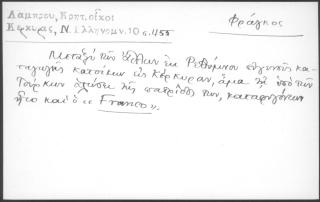 Λάμπρου, Κρητ. οἶκοι
Κερκύρας, Ν. Ἑλληνομν. 10 σ. 455
Φράγκος
Μεταξὺ τῶν ἐκ Ρεθύμνου εὐγενῆς κα-
ταγωγῆς κατοίκων εἰς Κέρκυραν, ἅμα τῇ ὑπὸ τῶν
Τούρκων τῆς πατρίδος των, καταφυγόντων
ἦτο καὶ ὁ « Franco».